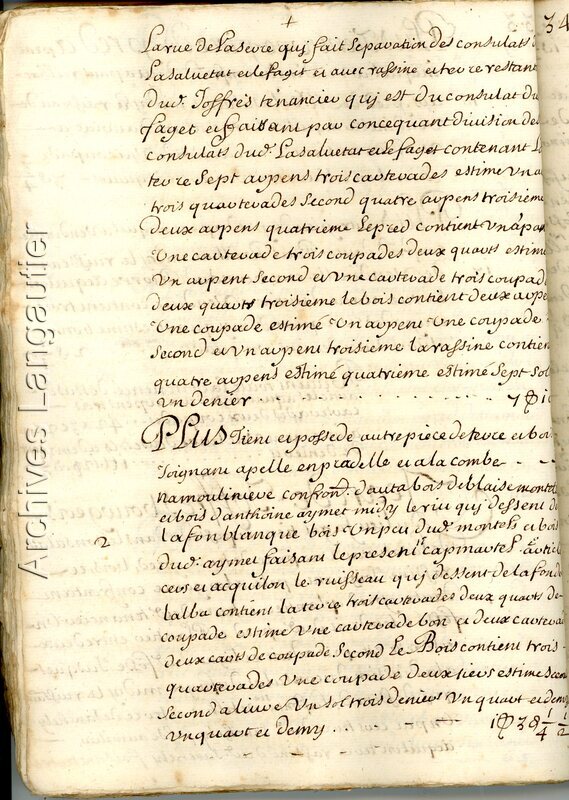 34
La rue de La seure quj fait separation des consulats
La saluetat et le fagit et avec rassine et terre restant
du d. Joffres tenancier quj est du consulat du
faget et faisant par concequant division des
consulats dud. La saluetat et Le faget contenant La
terre Sept arpens trois cartevades estime un a
trois quartevades Second quatre arpens troisieme
deux arpens quatrieme Le pred contient un arpan
une cartevade trois coupades deux quarts estime
un arpent Second et une cartevade trois coupad
deux quarts troisieme le bois contient deux arpe
une coupade estimé un arpent une coupade
Second et un arpent troisieme la rassine contien
quatre arpens estimé quatrieme estimé Sept sol
un denier 7
PLUS Tient et possede autre piece de terre et boi
Joignant apelle en piadelle et a la combe
na mouliniere confron. d'auta bois de blaise montel
et bois d'anthoine aymet midy le riu quj dessent de
la fon blanque bois un peu dud. montels et bois
2
dud. aymet faisant le present capmartel
cers et acquilon le ruisseau quj dessent de la fon de
lalba contient la terre trois cartevades deux quarts de
coupade estime une cartevade bon et deux cartevad
deux carts de coupade Second Le Bois contient trois
quartevades une coupade deux tiers estime
Second a liure un sol trois deniers un quart et demy
un quart et demy 1 3 1/4 1/2
Archives Langautier